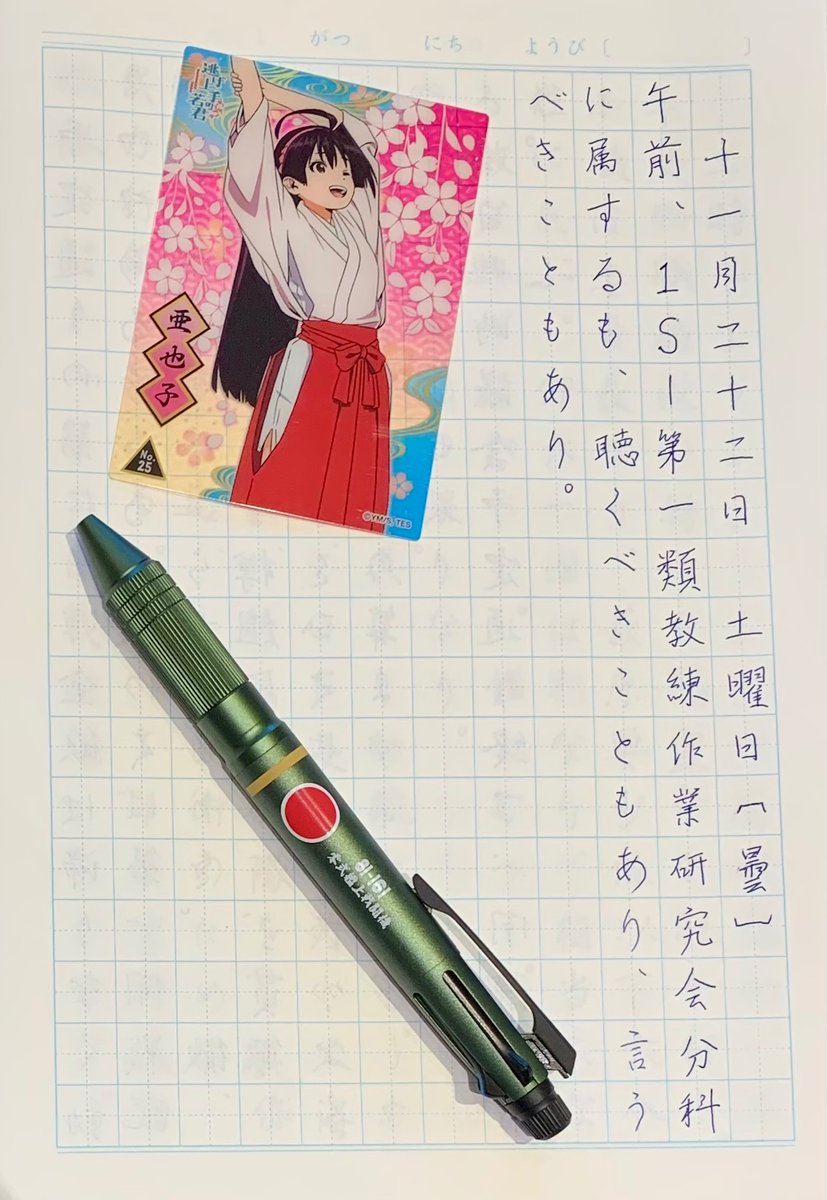 がつ にち ようび [ ]
十一月二十二日 土曜日〔曇〕
午前、1S-第一類教練作業研究会分科
に属するも、聴くべきこともあり、言う
べきこともあり。
逃げ上手の若君
亜也子
No.
25
©YM/S, TES
81-161
零式艦上戦闘機